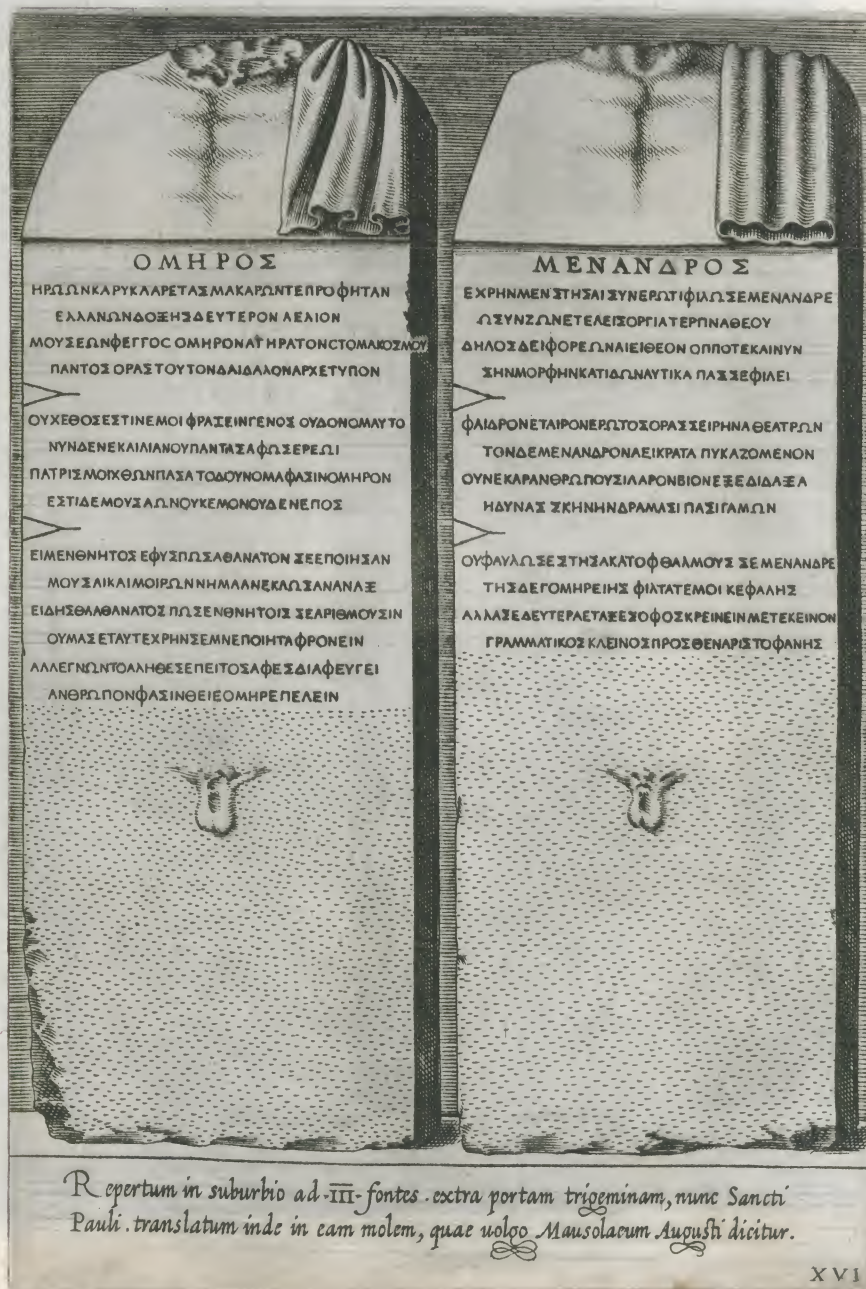 ΟΜΗΡΟΣ
ΗΡΩΩΝΚΑΡΥΚΑΑΡΕΤΑΣΜΑΚΑΡΩΝΤΕΠΡΟΦΗΤΑΝ
ΕΛΛΑΝΩΝΔΟΞΗΣΔΕΥΤΕΡΟΝ ΑΕΛΙΟΝ
ΜΟΥΣΕΩΝΦΕΓΓΟC ΟΜΗΡΟΝΑΓΗΡΑΤΟΝCΤΟΜΑΚΟΣΜΟΥ
ΠΑΝΤΟΣ ΟΡΑΣΤΟΥΤΟΝΔΑΙΔΑΛΟΝΑΡΧΕΤΥΠΟΝ
ΟΥΧΕΘΟΣΕΣΤΙΝΕΜΟΙ ΦΡΑΣΕΙΝΓΕΝΟΣ ΟΥΔΟΝΟΜΑΥΤΟ
ΝΥΝΔΕΝΕΚΑΙΛΙΑΝΟΥΠΑΝΤΑΣΑΦΩΣΕΡΕΩΙ
ΠΑΤΡΙΣΜΟΙΧΘΩΝΠΑΣΑΤΟΔΟΥΝΟΜΑΦΑΣΙΝΟΜΗΡΟΝ
ΕΣΤΙΔΕΜΟΥΣΑΩΝΟΥΚΕΜΟΝΟΥΔΕΝΕΠΟΣ
ΕΙΜΕΝΘΝΗΤΟΣ ΕΦΥΣΠΩΣΑΘΑΝΑΤΟΝ ΣΕΕΠΟΙΗΣΑΝ
ΜΟΥΣΑΙΚΑΙΜΟΙΡΩΝΝΗΜΑΑΝΕΚΛΩΣΑΝΑΝΑΞ
ΕΙΔΗΣΘΑΑΘΑΝΑΤΟΣ ΠΩΣΕΝΘΝΗΤΟΙΣ ΣΕΑΡΙΘΜΟΥΣΙΝ
ΟΥΜΑΣΕΤΑΥΤΕΧΡΗΝΣΕΜΝΕΠΟΙΗΤΑΦΡΟΝΕΙΝ
ΑΛΛΕΓΝΩΝΤΟΑΛΗΘΕΣΕΠΕΙΤΟΣΑΦΕΣΔΙΑΦΕΥΓΕΙ
ΑΝΘΡΩΠΟΝΦΑΣΙΝΘΕΙΕΟΜΗΡΕΠΕΛΕΙΝ
ΜΕΝΑΝΔΡΟΣ
ΕΧΡΗΝΜΕΝΣΤΗΣΑΙΣΥΝΕΡΩΤΙΦΙΛΩΣΕΜΕΝΑΝΔΡΕ
ΩΣΥΝΖΩΝΕΤΕΛΕΙΣΟΡΓΙΑΤΕΡΠΝΑΘΕΟΥ
ΔΗΛΟΣΔΕΙΦΟΡΕΩΝΑΙΕΙΘΕΟΝ ΟΠΠΟΤΕΚΑΙΝΥΝ
ΣΗΝΜΟΡΦΗΝΚΑΤΙΔΩΝΑΥΤΙΚΑ ΠΑΣΣΕΦΙΛΕΙ
ΦΑΙΔΡΟΝΕΤΑΙΡΟΝΕΡΩΤΟΣΟΡΑΣΣΕΙΡΗΝΑΘΕΑΤΡΩΝ
ΤΟΝΔΕΜΕΝΑΝΔΡΟΝΑΕΙΚΡΑΤΑ ΠΥΚΑΖΟΜΕΝΟΝ
ΟΥΝΕΚΑΡΑΝΘΡΩΠΟΥΣΙΛΑΡΟΝΒΙΟΝΕΞΕΔΙΔΑΞΑ
ΗΔΥΝΑΣ ΣΚΗΝΗΝΔΡΑΜΑΣΙ ΠΑΣΙΓΑΜΩΝ
ΟΥΦΑΥΛΩΣΕΣΤΗΣΑΚΑΤΟΦΘΑΛΜΟΥΣ ΣΕΜΕΝΑΝΔΡΕ
ΤΗΣΔΕΓΟΜΗΡΕΙΗΣ ΦΙΛΤΑΤΕΜΟΙ ΚΕΦΑΛΗΣ
ΑΛΛΑΣΕΔΕΥΤΕΡΑΕΤΑΞΕΣΟΦΟΣΚΡΕΙΝΕΙΝΜΕΤΕΚΕΙΝΟΝ
ΓΡΑΜΜΑΤΙΚΟΣ ΚΛΕΙΝΟΣΠΡΟΣΘΕΝΑΡΙΣΤΟΦΑΝΗΣ
Repertum in suburbio ad-III-fontes.extra portam trigeminam, nunc Sancti
Pauli. translatum inde in eam molem, quae uolgo Mausolaeum Augusti dicitur.
XVI